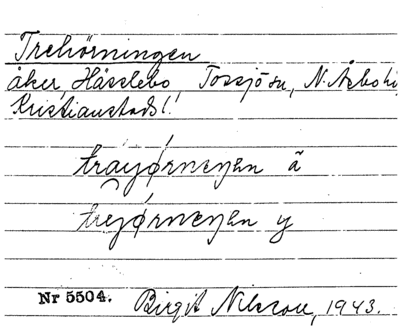 Trehörningen
åker, Hässlebo, Tossjö sn, N. Åsbo hd,
Kristianstads l.
trayørneŋən ä
treyørneŋən y
Nr 5504. Birgit Nilsson, 1943.